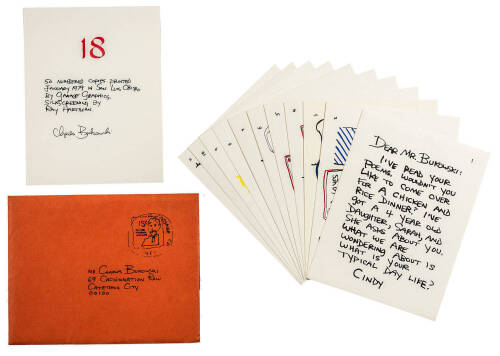 18
50 NUMBERED COPIES PRINTED
JANUARY 1979 IN SAN LUIS OBISPO
BY GARAGE GRAPHICS,
SILKSCREENING BY
RAY HARTMAN.
Charles Bukowski
MR CHARLES BUKOWSKI
69 CACHINNATION ROW
CATATONIC CITY
00100
1
DEAR MR. BUKOWSKI:
I'VE READ YOUR
POEMS. WOULDN'T YOU
LIKE TO COME OVER
FOR A CHICKEN AND
RICE DINNER? I'VE
GOT A 4 YEAR OLD
DAUGHTER, SARAH AND
SHE ASKS ABOUT YOU.
WHAT WE ARE
WONDERING ABOUT IS
WHAT IS YOUR
TYPICAL DAY LIKE?
CINDY